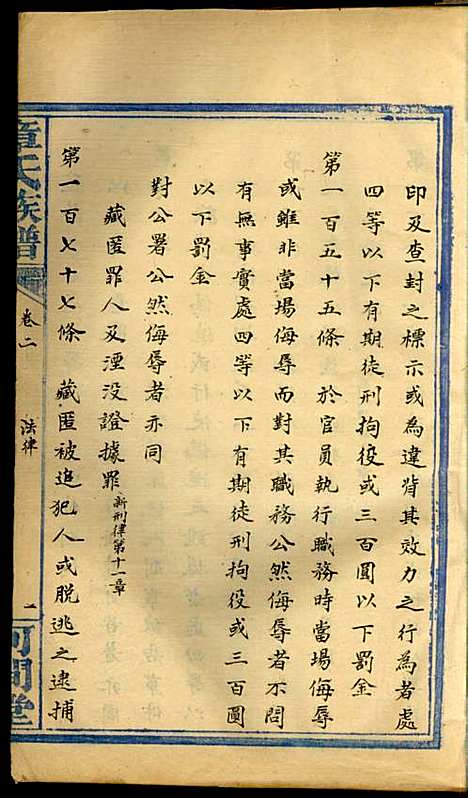 印及查封之標示或為違背其效力之行為者處
四等以下有期徒刑拘役或三百圓以下罰金
第一百五十五條　於官員執行職務時當場侮辱
或雖非當場侮辱而對其職務公然侮辱者不問
有無事實處四等以下有期徒刑拘役或三百圓
以下罰金
對公署公然侮辱者亦同
藏匿罪人及湮没證據罪 新刑律第十一章
第一百七十七條　藏匿被追犯人或脱逃之逮捕
章氏族譜　卷二　法律　二　可閒堂